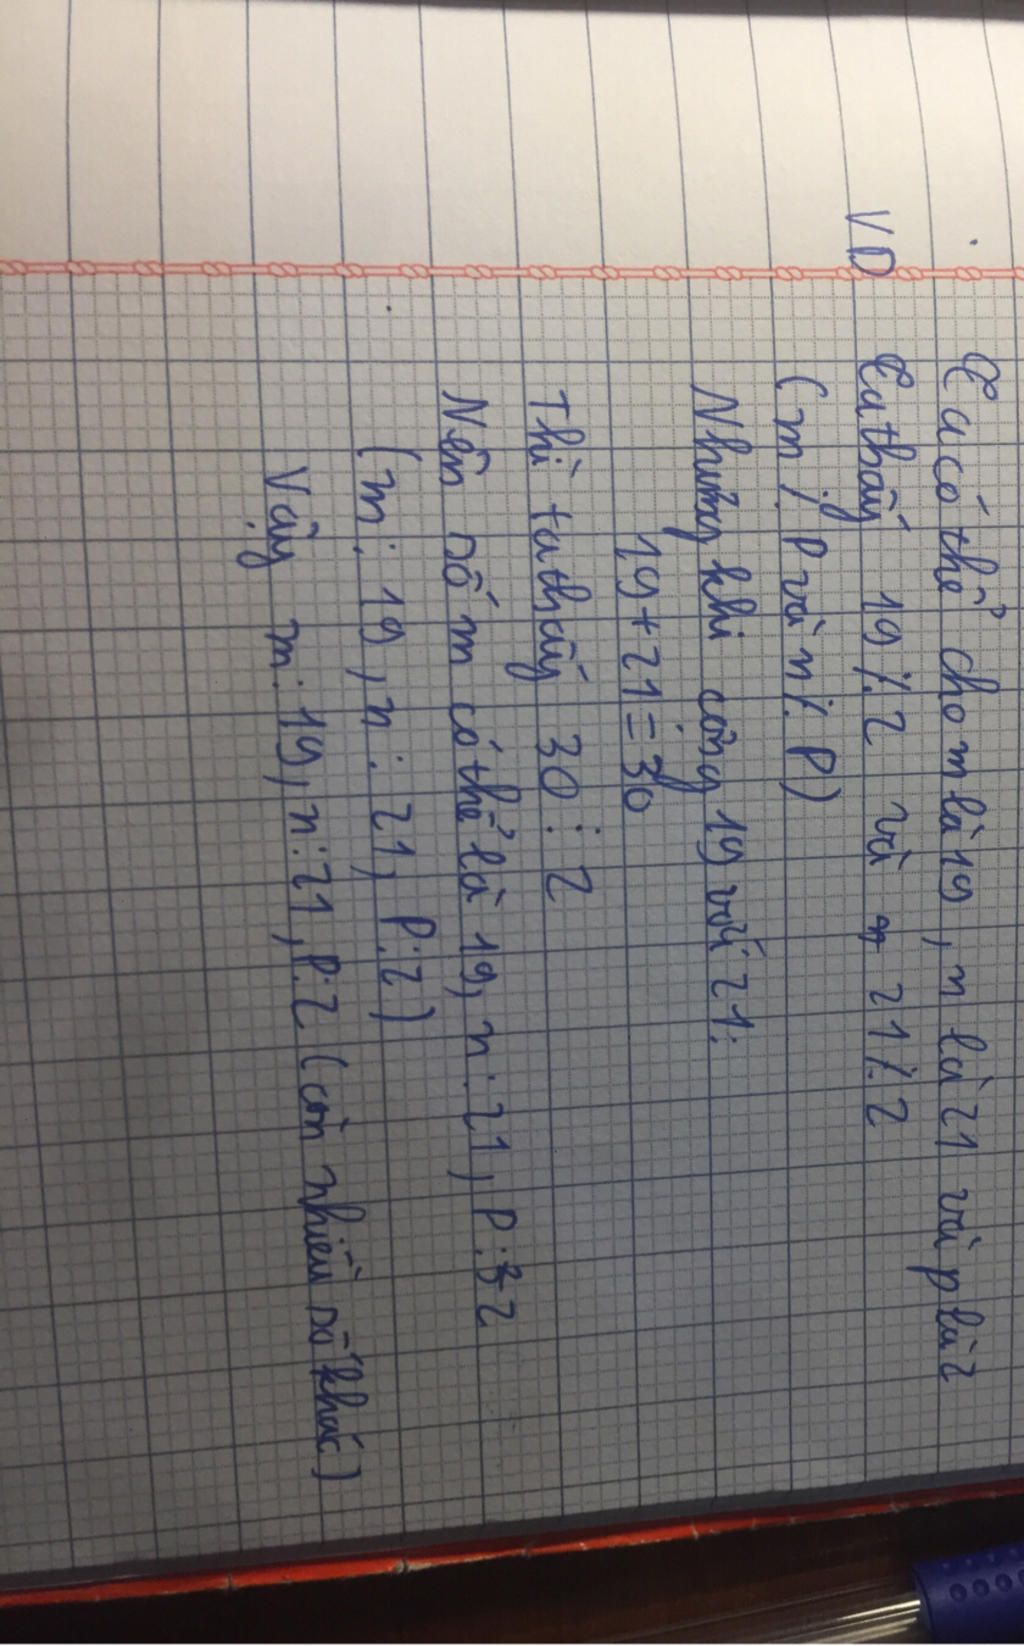 Ta có thể cho m là 19, n là 21 và p là 2
VD Ta thấy 19 ⋮̸ 2 và 21 ⋮̸ 2
(m ⋮̸ P và n ⋮̸ P)
Nhưng khi cộng 19 với 21:
19 + 21 = 30
Thì ta thấy 30 ⋮ 2
Nên số m có thể là 19, n : 21, P : 2
(m : 19, n : 21, P : 2)
Vậy m : 19, n : 21, P : 2 (còn nhiều số khác)